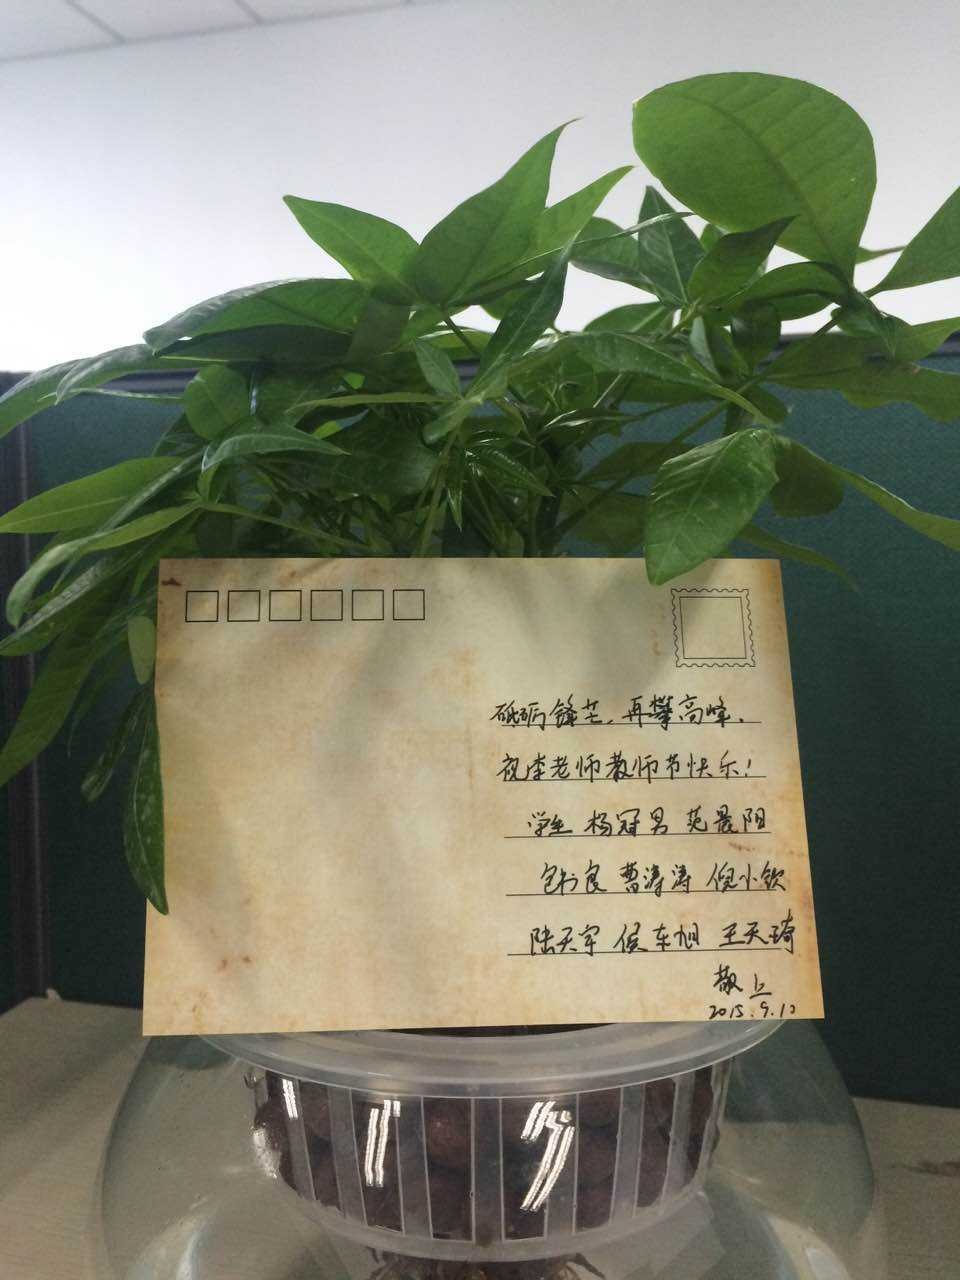 砥砺锋芒，再攀高峰，
祝李老师教师节快乐！
学生 杨冠男 范晨阳
包书良 曹涛涛 倪小钦
陆天宇 侯东旭 王天琦
敬上
2015.9.10